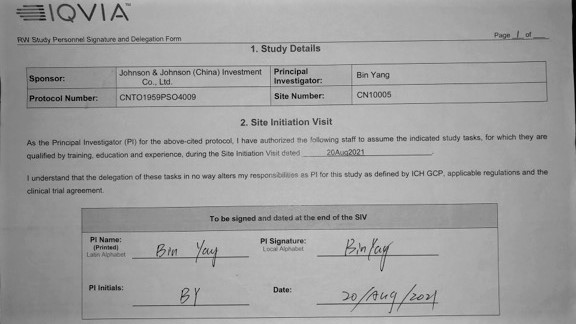 IQVIA™
RW Study Personnel Signature and Delegation Form
Page 1 of
1. Study Details
Sponsor: Johnson & Johnson (China) Investment Co., Ltd. Principal Investigator: Bin Yang
Protocol Number: CNTO1959PSO4009 Site Number: CN10005
2. Site Initiation Visit
As the Principal Investigator (PI) for the above-cited protocol, I have authorized the following staff to assume the indicated study tasks, for which they are
qualified by training, education and experience, during the Site Initiation Visit dated 20Aug2021.
I understand that the delegation of these tasks in no way alters my responsibilities as PI for this study as defined by ICH GCP, applicable regulations and the
clinical trial agreement.
To be signed and dated at the end of the SIV
PI Name: Bin Yang PI Signature: Bin Yang
(Printed)
Latin Alphabet Local Alphabet
PI Initials: BY Date: 20/Aug/2021